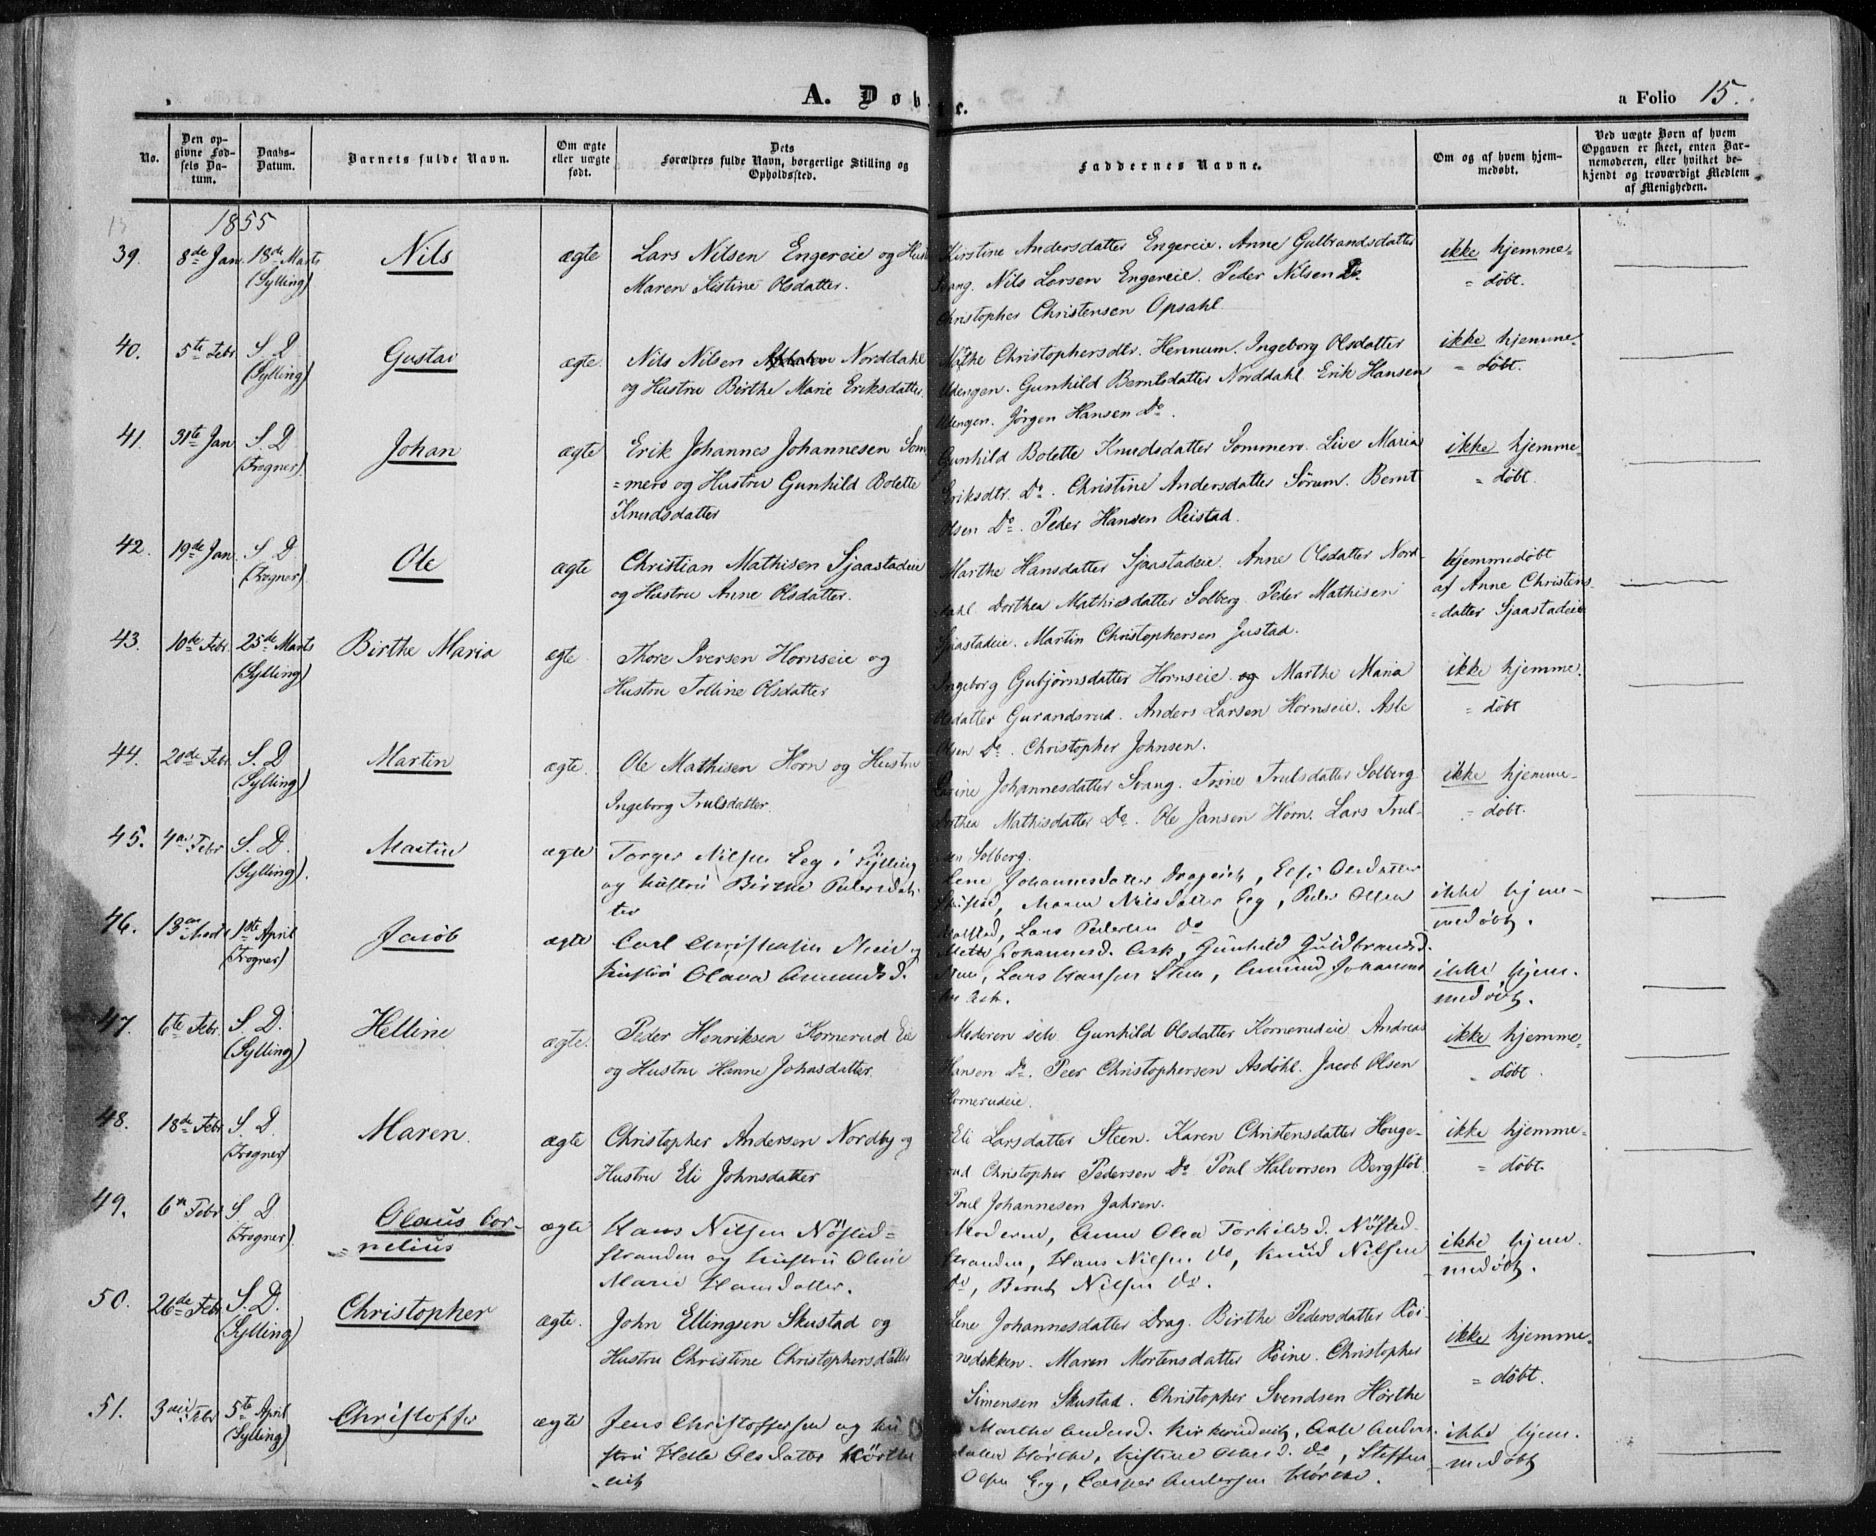 A. Døbte.
a Folio 15.
No.
Den opgivne Fødsels Datum.
Daabs-Datum.
Barnets fulde Navn.
Om ægte eller uægte født.
Dets Forældres fulde Navn, borgerlige Stilling og Opholdssted.
Faddernes Navne.
Om og af hvem hjemmedøbt.
Ved uægte Børn af hvem Opgaven er skeet, enten Barnemoderen, eller hvilket bekjendt og troværdigt Medlem af Menigheden.
1855
39. 8de Jan. 18de Marts (Sylling) Nils ægte
Lars Nilsen Engereie og Hust
Maren Kistine Olsdatter.
Kirstine Andersdatter Engereie. Anne Gulbrandsdatter
Svang. Nils Larsen Engereie. Peder Nilsen Do.
Christopher Christensen Opsahl.
ikke hjemme-
= døbt.
40. 5te Febr S. D (Sylling) Gustav ægte.
Nils Nilsen Norddahl
og Hustru Birthe Marie Eriksdatter.
Christophersdtr. Hennum. Ingeborg Olsdatter
Udengen. Gunhild Berntsdatter Norddahl. Erik Hansen
Udengen. Jørgen Hansen Do.
ikke hjemme-
= døbt.
41. 31te Jan S D (Frogner) Johan ægte
Erik Johannes Johannesen Som
= mero og Hustru Gunhild Bolette
Knudsdatter
Gunhild Bolette Knudsdatter Sommero. Live Maria
Eriksdtr. Do. Christine Andersdatter Sørum. Bernt
Olsen Do. Peder Hansen Reistad.
ikke hjemme-
= døbt.
42. 19de Jan. S D. (Frogner) Ole ægte
Christian Mathisen Sjaastadeie
og Hustru Anne Olsdatter.
Marthe Hansdatter Sjaastadeie. Anne Olsdatter Nord-
dahl. Dorthea Mathisdatter Solberg. Peder Mathisen
Sjaastadeie. Martin Christophersen Justad.
hjemmedøbt
af Anne Christens-
= datter Sjaastadeie
43. 10de Febr. 25de Marts (Sylling) Birthe Maria ægte.
Thore Iversen Hornseie og
Hustru Tolline Olsdatter
Ingeborg Gubjørnsdatter Hornseie og Marthe Maria
Olsdatter Gurandsrud. Anders Larsen Hornseie. Asle
Olsen Do. Christopher Johnsen.
ikke hjemme.
= døbt
44. 20de Febr. S. D (Sylling) Martin ægte.
Ole Mathisen Horn og Hustru
Ingeborg Trulsdatter.
Johannesdatter Svang. Trine Trulsdatter Solberg.
Dorthea Mathisdatter Do. Ole Jansen Horn. Lars Trul-
sen Solberg.
ikke hjemme-
= døbt.
45. 4de Febr S. D. (Sylling). Martin ægte
Torger Nilsen Eeg i Sylling
og hustru Birthe Pedersdat-
ter
Lene Johannesdatter Drageeie, Olsdatter
Skustad, Maren Nilsdatter Eeg, Peder Olsen
Lars Pedersen Do
ikke hjem-
medøbt.
46. 13de Marts 1ste April (Frogner) Jacob ægte
Carl Christiansen og
hustru Olava Amundsd.
Mette Johannesd. Ask, Gunhild Guldbrandsd.
Steen, Lars Hansen Steen, Amund Johannes
sen Ask.
ikke hjem.
medøbt.
47. 6te Febr. S. D. (Sylling) Helline ægte.
Peder Henriksen Kornerud Eie
og Hustru Hanne Johnsdatter.
Moderen selv Gunhild Olsdatter Kornerudeie Andreas
Hansen Do. Peer Christophersen Asdøhl. Jacob Olsen
Kornerudeie.
ikke hjemme-
= døbt.
48. 18de Febr S. D. (Frogner) Maren. ægte
Christopher Andersen Nordby og
Hustru Eli Johnsdatter
Eli Larsdatter Steen. Karen Christensdatter Houge-
rud Christopher Pedersen Do Poul Halvorsen Bergfløt.
Poul Johannesen Jahren.
ikke hjemme-
= døbt.
49. 6te Febr S. D (Frogner). Olaus Cor-
= nelius ægte
Hans Nilsen Nøsted=
stranden og hustru Oline
Marie Hansdatter.
Moderen, Anne Olea Torkildsd. Nøsted-
stranden, Hans Nilsen Do, Knud Nilsen
Do, Bernt Nilsen Do.
ikke hjem.
medøbt.
50. 26de Febr S. D. (Sylling) Christopher ægte.
John Ellingsen Skustad og
Hustru Christine Christophersdatter
Lene Johannesdatter Drag. Birthe Pedersdatter Røi-
nedokken. Maren Mortensdatter Røine. Christopher
Simensen Skustad. Christopher Svendsen Hørthe
ikke hjemme-
= døbt.
51. 3die Febr 5te April (Sylling) Christoffer ægte
Jens Christoffersen og hu
stru Helle Olsdatter Hørthe
= eie
Marthe Andersd. Kirkerudeie, Anders.
datter Hørthe, Kistine Do, Steffen
Olsen Eeg, Casper Andersen Hørthe.
ikke hjem.
= medøbt